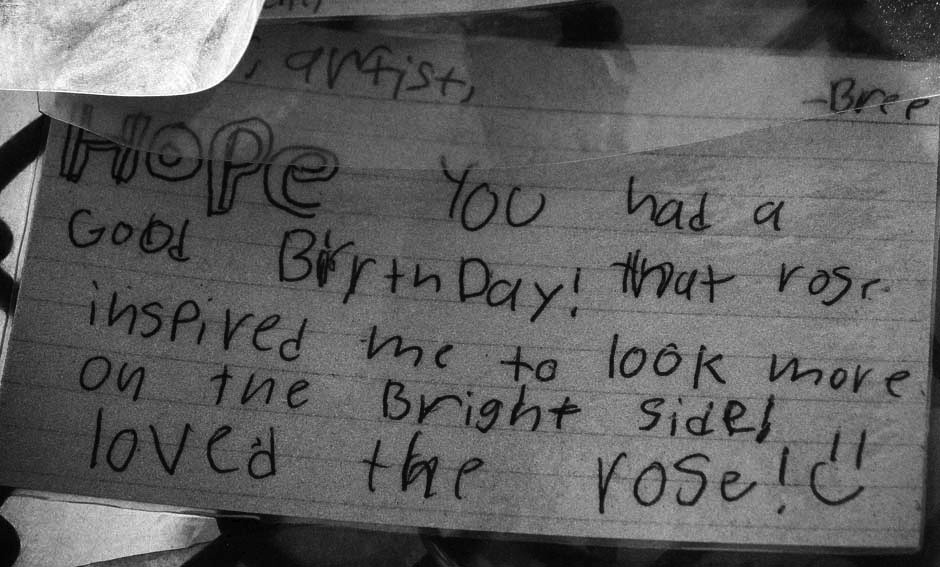 artist,
-Bree
HOPe YOU had a
Good BirtnDay! that rose
inspired me to look more
on the Bright side!
loved the rose!